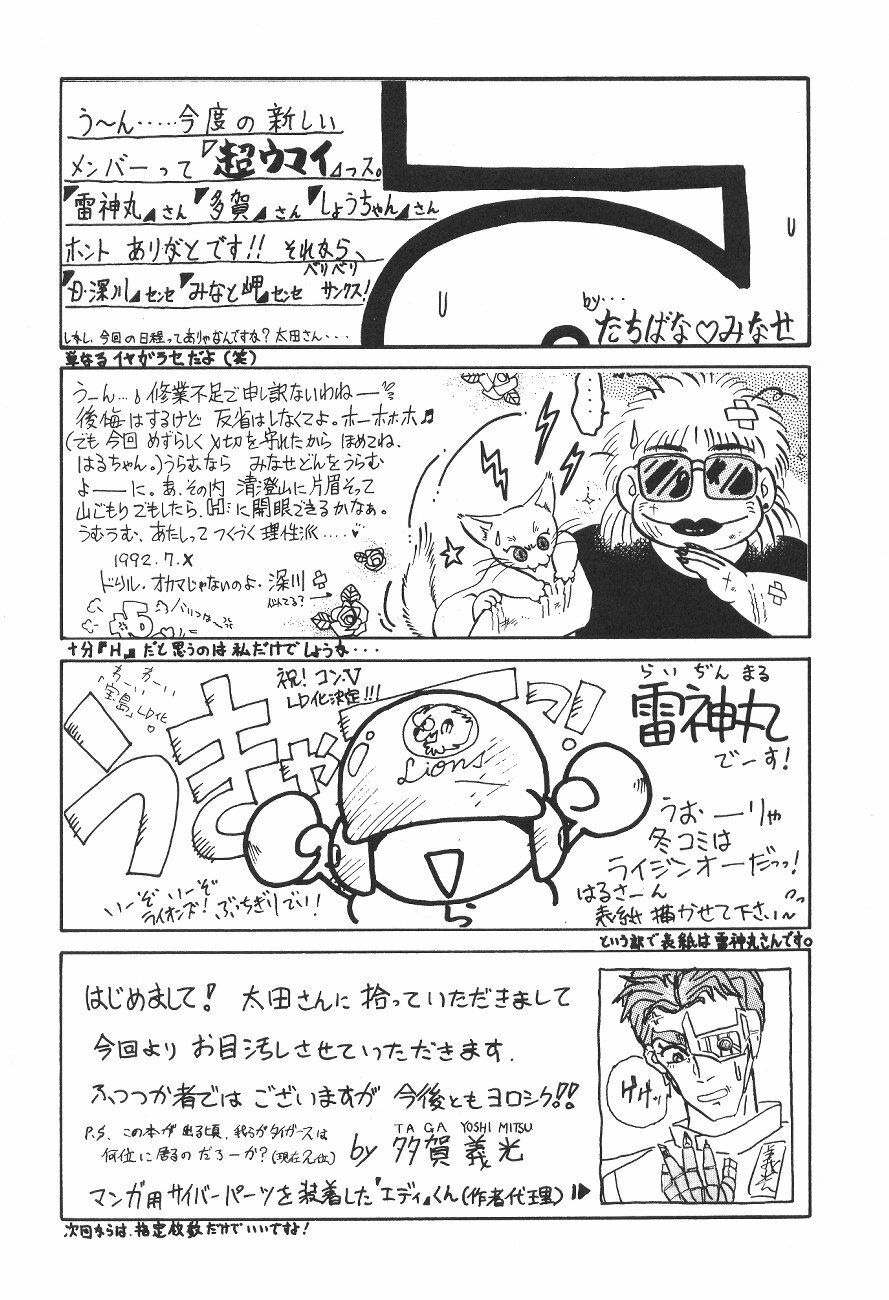 う〜ん.....今度の新しい
メンバーって『超ウマイ』っス。
『雷神丸』さん『多賀』さん『しょうちゃん』さん
ホント ありがとです!! それなら、
『日・深川』センセ『みなと岬』センセ ベリベリ サンクス!
しかし、今回の日程ってありゃなんですね? 太田さん・・・
by・・・
たちばな♡みなせ
単なるイヤがラセだよ(笑)
うーん...♪修業不足で申し訳ないわねー
後悔はするけど 反省はしなくてよ。ホーホホホ♬
(でも今回 めずらしく〆切を守れたから ほめてね、
はるちゃん。)うらむなら みなせどんをうらむ
よーーに。あ、その内 清澄山に片眉そって
山ごもりでもしたら、Hに開眼できるかなぁ。
うむうむ、あたしってつくづく理性派....♥
1992.7.X
ドリル・オカマじゃないのよ・深川
似てる?
十分『H』だと思うのは私だけでしょうか・・・
祝! コン・V
LD化決定!!!
ちーい ちーい
「宝島」LD化♡
うきゃーっ!
Lions
いーぞ いーぞ
ライオンズ! ぶっちぎりでい!!
ら
らい ぢん まる
雷神丸
でーす!
うおーーりゃ
冬コミは
ライジンオーだっっ!
はるさーん
表紙 描かせて下さい〜
という訳で表紙は雷神丸さんです。
はじめまして! 太田さんに 拾っていただきまして
今回より お目汚しさせていっただきます.
ふつつか者では ございますが 今後ともヨロシク!!
P.S. この本が出る頃、我らがタイガースは
何位に居るのだろーか?(現在2位)
TA GA YOSHI MITSU
by 多賀 義光
マンガ用サイバーパーツを装着した『エディ』くん(作者代理)
ゲゲッ
義光
次回からは、指定枚数だけでいいですよ!